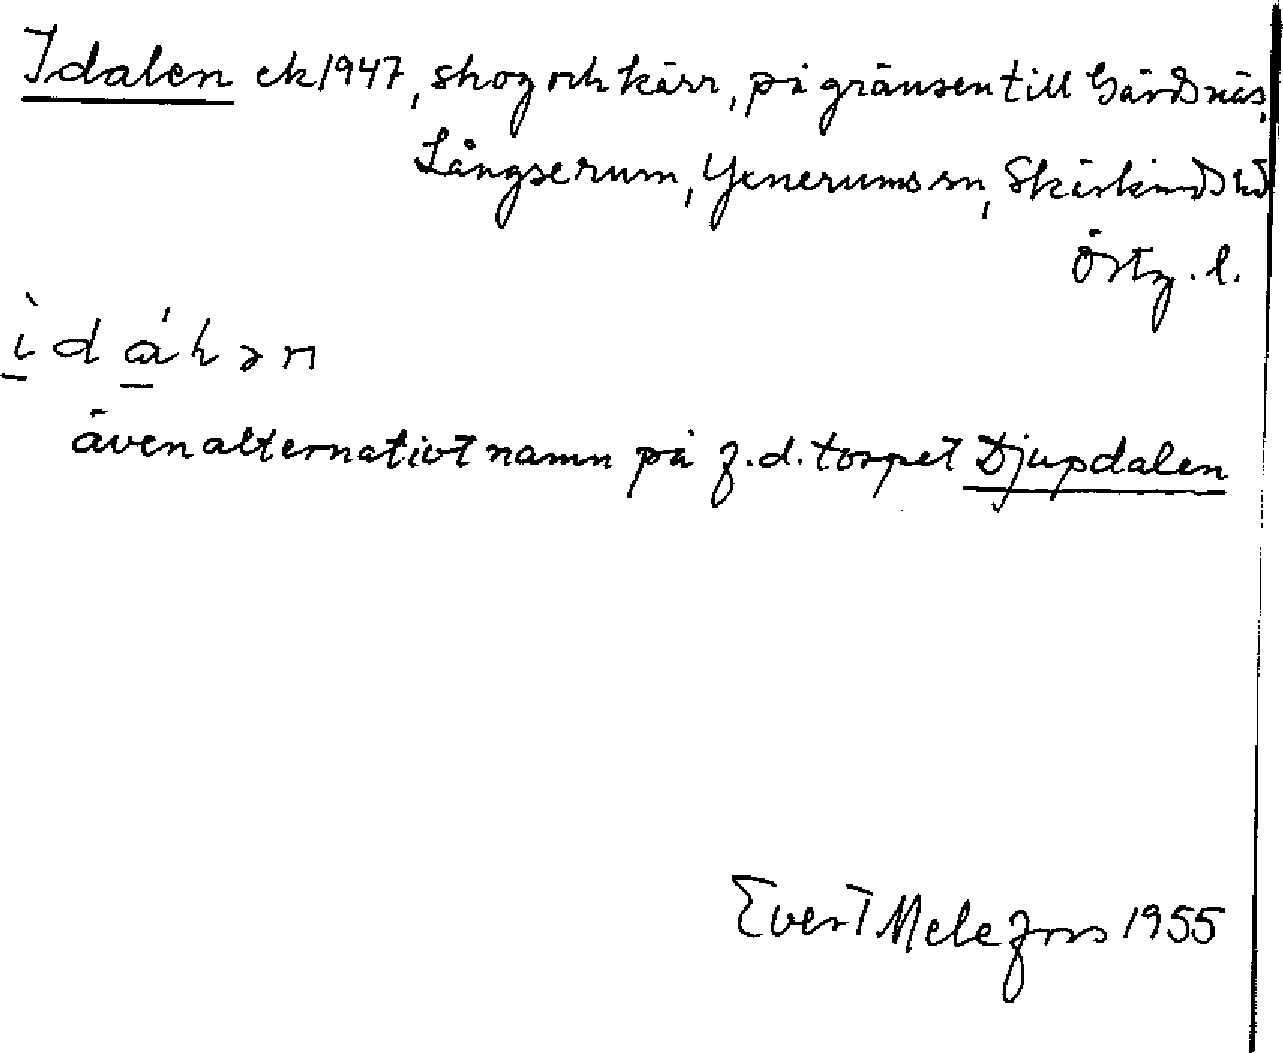 Idalen ek 1947, skog och kärr, på gränsen till Gärdsnäs,
Långserum, Yxnerums sn, Skärkinds hd
Östg. l.
ìdáhən
även alternativt namn på f.d. torpet Djupdalen
Evert Melefors 1955